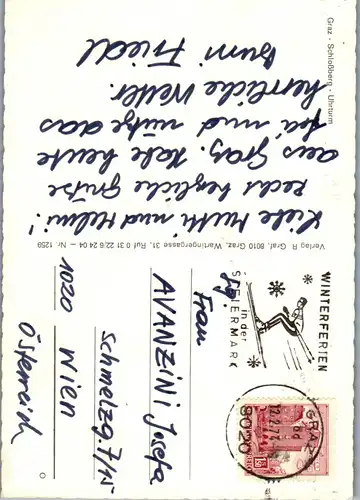 Graz - Schloßberg - Uhrturm
Liebe Mutti und Helmi!
Recht herzliche Grüße
aus Graz. Habe heute
frei und nütze das
herrliche Wetter.
Bussi Friedl
Verlag R. Graf, 8010 Graz, Wartingergasse 31, Ruf 0 31 22/6 24 04 – Nr. 1259
WINTERFERIEN
in der
STEIERMARK
GRAZ
8020
Frau
AVANZINI Josefa
Schmelzg. 7/15
1020 Wien
Österreich